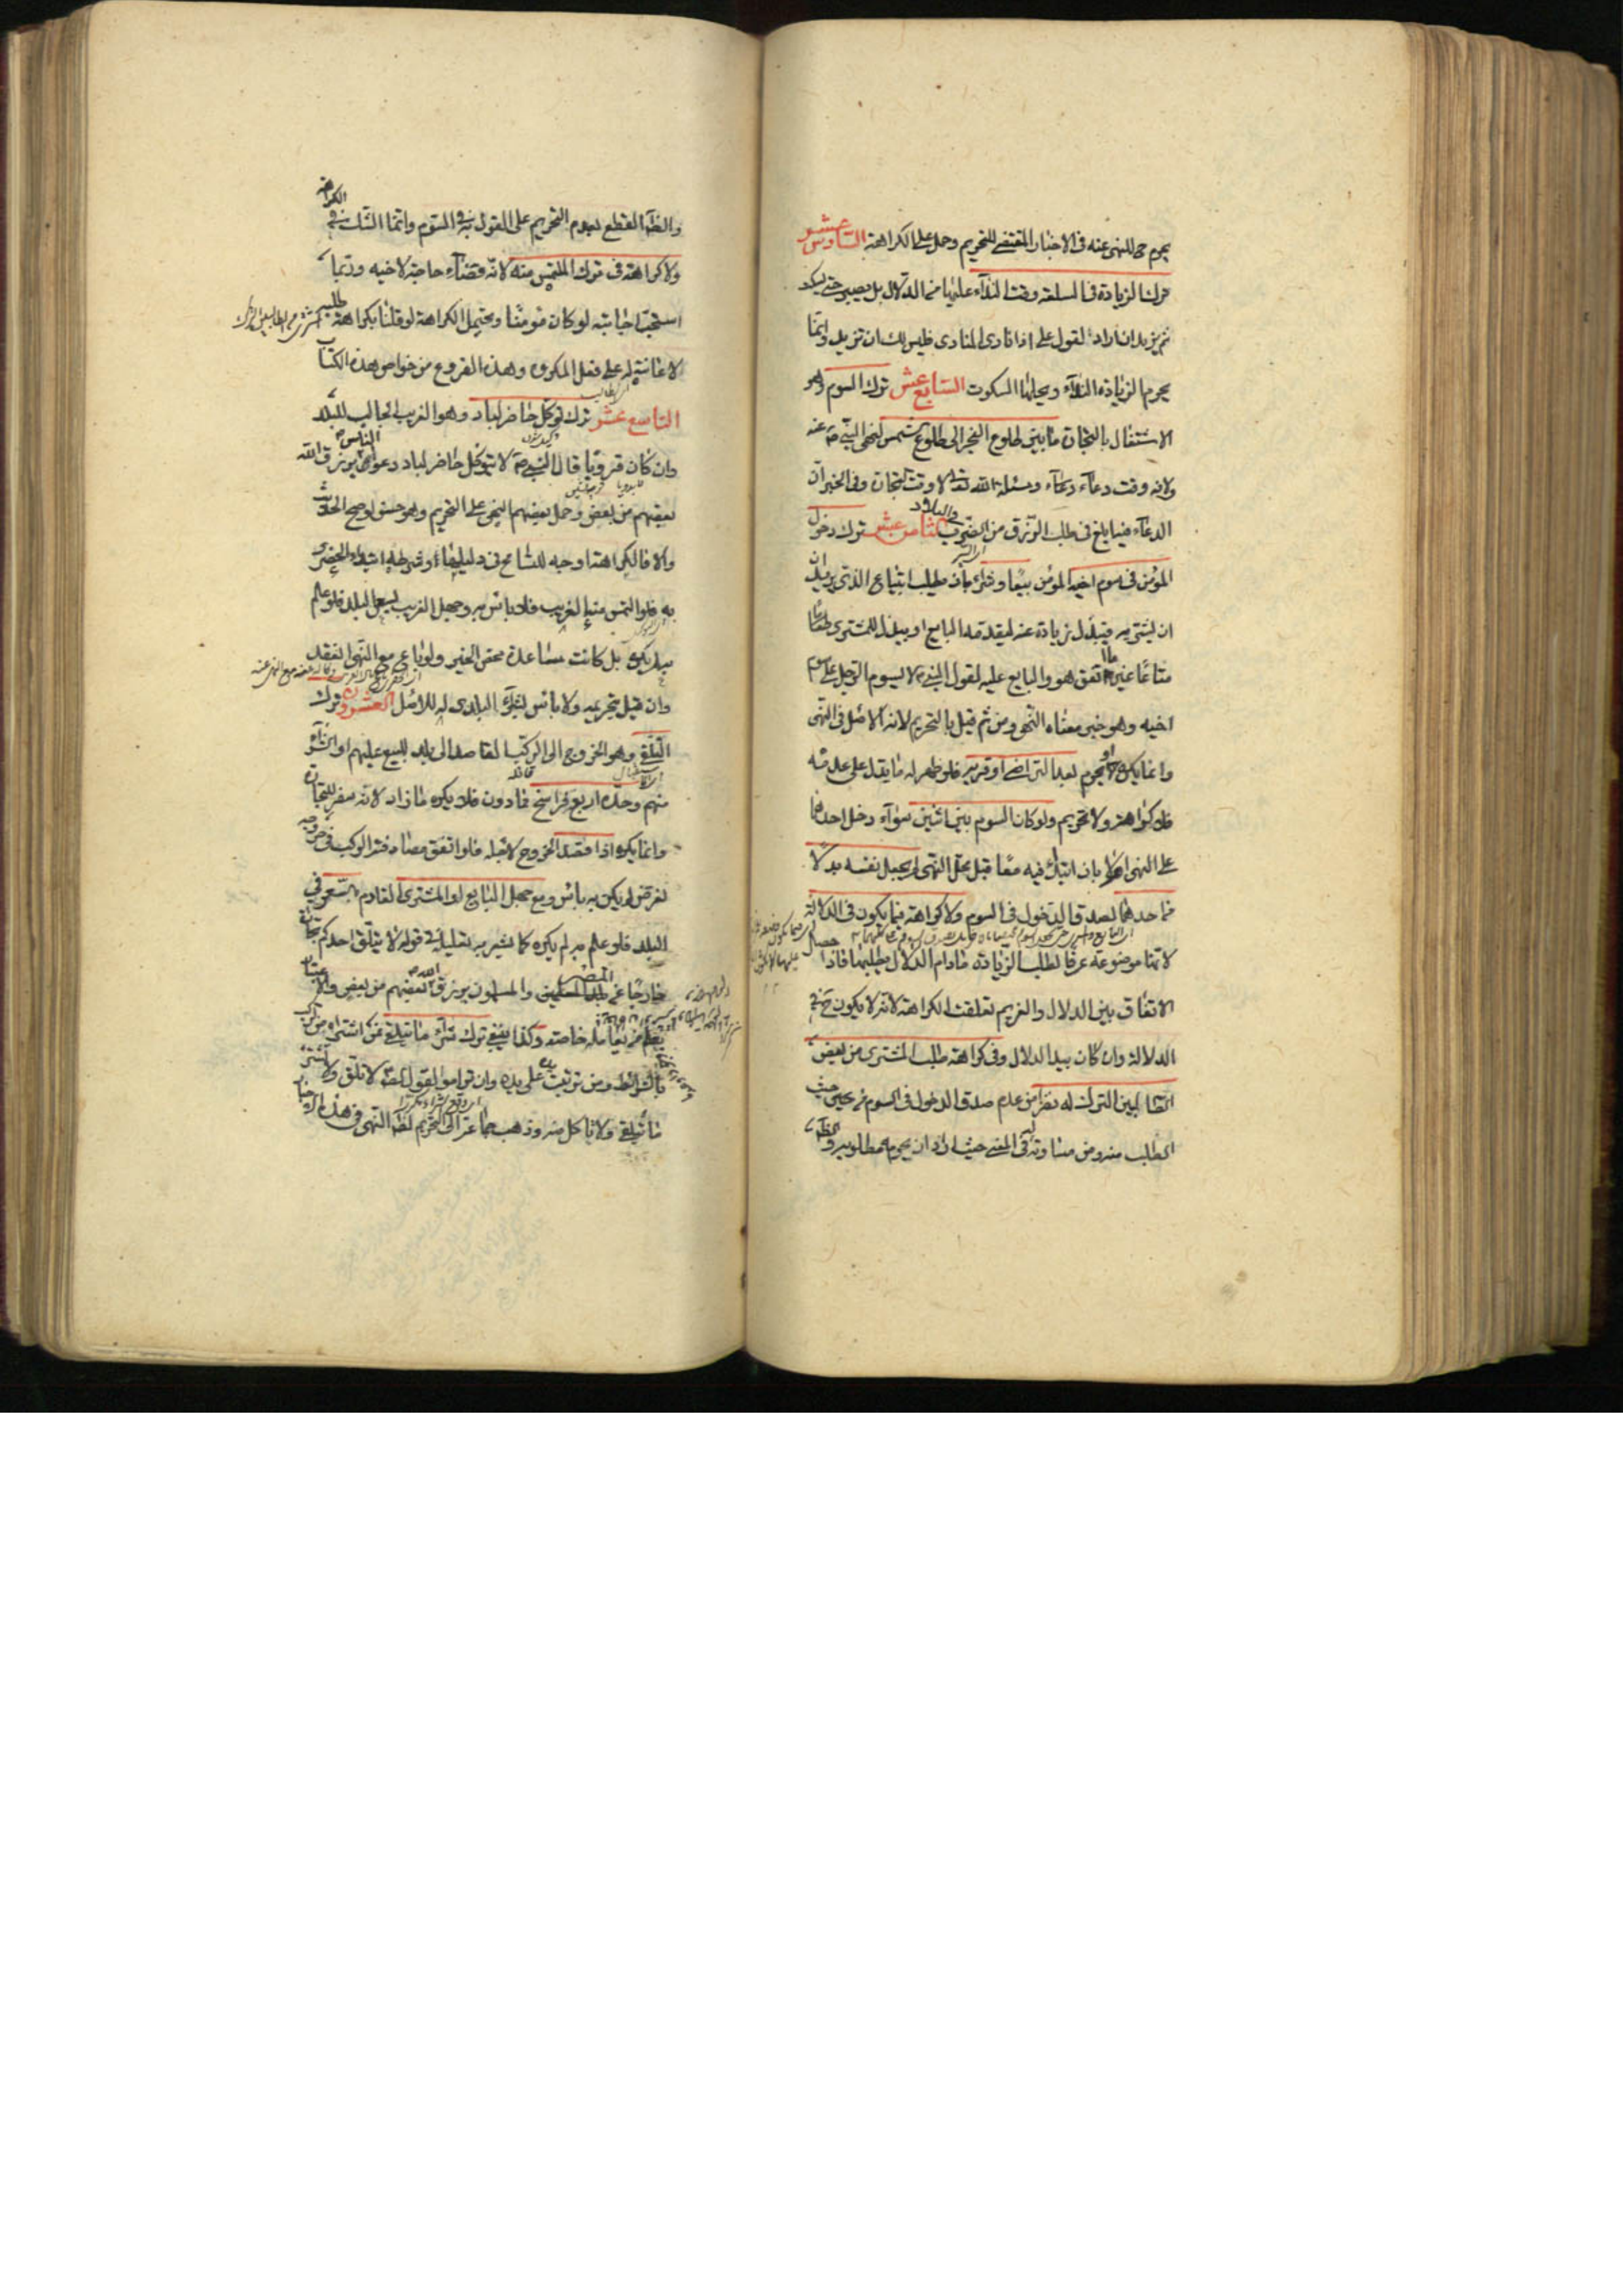 يحرم للنهي عنه في الاخبار المقتضي للتحريم وحمل على الكراهة السادس عشر
ترك الزيادة في السلعة وقت النداء عليها من الدلال بل يصبر حتى يسكت
ثم يزيد ان اراد لقول علي اذا نادى المنادي فليس لك ان تزيد وانما
يحرم الزيادة النداء ويحلها السكوت السابع عشر ترك السوم وهو
الاشتغال بالتجارة ما بين طلوع الفجر الى طلوع الشمس لنهي النبي ص عنه
ولانه وقت دعاء ومسئلة الله تعالى لا وقت تجارة وفي الخبر ان
الدعاء فيه ابلغ في طلب الرزق من الضرب في البلاد الثامن عشر ترك دخول
المؤمن في سوم اخيه المؤمن بيعا وشراء بان يطلب ابتياع الذي يريد
ان يشتريه فيبذل زيادة عنه ليقدمه البايع او يبذل للمشتري
متاعا غير ما اتفق هو والبايع عليه لقول النبي ص لا يسوم الرجل على سوم
اخيه وهو خبر معناه النهي ومن ثم قيل بالتحريم لانه الاصل في النهي
وانما يكره او يحرم بعد التراضي او قربه فلو ظهر له ما يدل على عدمه
فلا كراهة ولا تحريم ولو كان السوم بين اثنين سواء دخل احدهما
على النهي ام لا بان ابتدأ فيه معا قبل محل النهي لم يجعل نفسه بدلا
من احدهما لصدق الدخول في السوم ولا كراهة فيما يكون في الدلالة
لانها موضوعة عرفا لطلب الزيادة ما دام الدلال يطلبها فاذا حصل
الاتفاق بين الدلال والغريم تعلقت الكراهة لانه لا يكون حينئذ في
الدلالة وان كان بيد الدلال وفي كراهة طلب المشتري من بعض
الطالبين الترك له نظر من عدم صدق الدخول في السوم من حيث
الطلب منه ومن مساواته له في المعنى حيث اراد ان يحرمه مطلوبه والظاهر
والظاهر القطع بعدم التحريم على القول به في السوم وانما الشك في الكراهة
ولا كراهة في ترك الملتمس منه لانه قضاء حاجة لاخيه وربما
استحب اجابته لو كان مؤمنا ويحتمل الكراهة لو قلنا بكراهة طلبه
لاعانته له على فعل المكروه وهذه الفروع من خواص هذه الكتاب
التاسع عشر ترك توكل حاضر لباد وهو الغريب الجالب للبلد
وان كان قرويا قال النبي ص لا يتوكل حاضر لباد دعوا الناس يرزق الله
بعضهم من بعض وحمل بعضهم النهي على التحريم وهو حسن لو صح الحديث
والا فالكراهة اوجه للتسامح في دليلها وشرطه ابتداء الحضري
به فلو التمس منه الغريب فلا باس به وجهل الغريب بسعر البلد فلو علم
به لم يكره بل كانت مساعدة محض الخير ولو باع مع النهي انعقد
وان قيل بتحريمه ولا باس بشراء البلدي له للاصل العشرون ترك
التلقي وهو الخروج الى الركب القاصد الى بلد للبيع عليهم او الشراء
منهم وحده اربع فراسخ فما دون فلا يكره ما زاد لانه سفر للتجارة
وانما يكره اذا قصد الخروج لاجله فلو اتفق مصادفة الركب في خروجه
لغرض لم يكن به باس ومع جهل البايع او المشتري القادم بالسعر في
البلد فلو علم به لم يكره كما يشير به تعليله في قوله لا يتلقى احدكم تجارة
خارجا عن المصر والمسلمون يرزق الله بعضهم من بعض والاعتبار
بعلم من يعامله خاصة وكذا ينبغي ترك شراء ما يتلقى ممن اشتراه من الركب
بالشرائط ومن ترتبت يده على يده وان ترامى لقول الصادق لا تلق ولا تشتر
ما تلقى ولا تاكل منه وذهب جماعة الى التحريم لظاهر النهي في هذه الاخبار